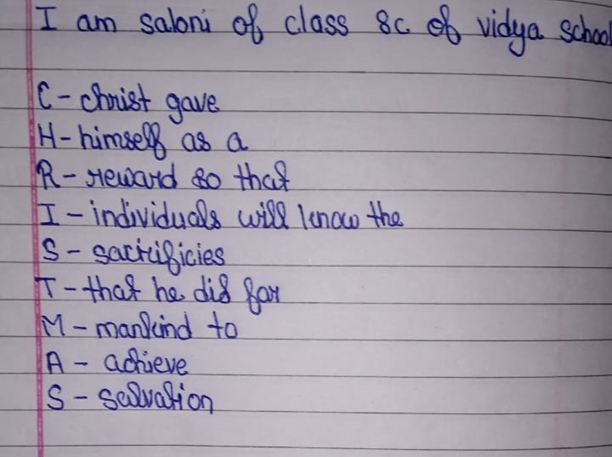 I am saloni of class 8c of vidya school
C - christ gave
H - himself as a
R - reward so that
I - individuals will know the
S - sacrificies
T - that he did for
M - mankind to
A - achieve
S - salvation